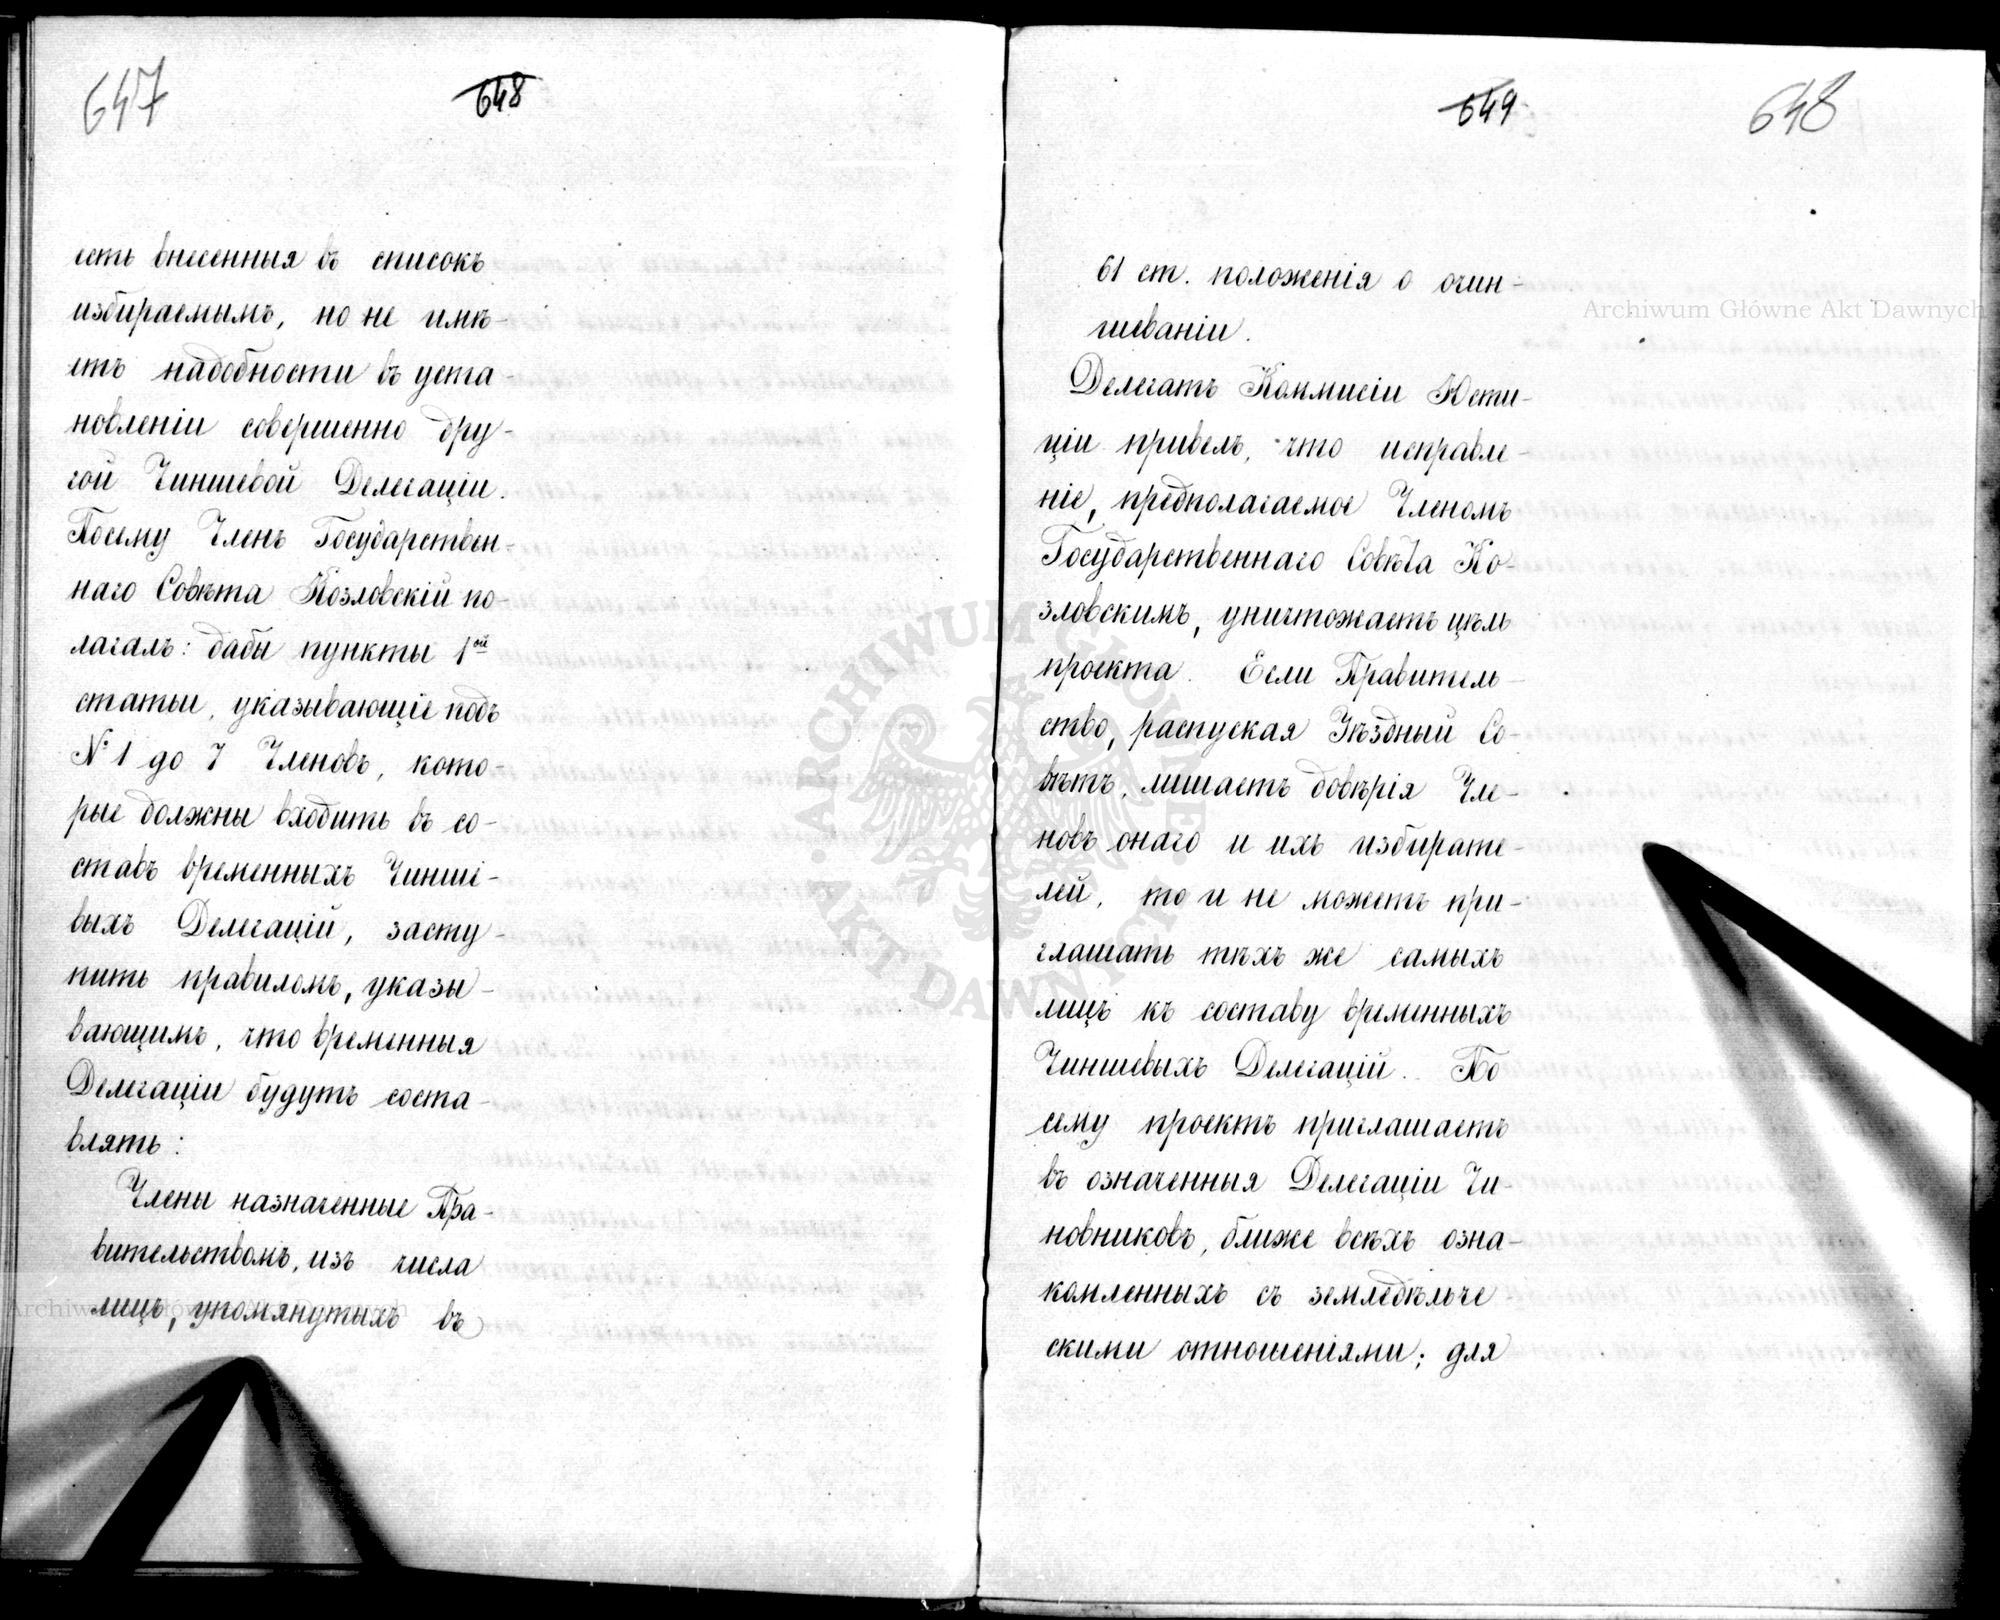 647
648
есть внесенныя въ списокъ
избираемымъ, но не имѣ-
етъ надобности въ уста-
новленіи совершенно дру-
гой Чиншевой Делегаціи.
Посему Членъ Государствен-
наго Совѣта Козловскій по-
лагалъ: дабы пункты 1ой
статьи, указывающіе подъ
№ 1 до 7 Членовъ, кото-
рые должны входить въ со-
ставъ временныхъ Чинше-
выхъ Делегацій, засту-
пить правиломъ, указы-
вающимъ, что временныя
Делегаціи будутъ соста-
влять:
Члены назначенные Пра-
вительствомъ, изъ числа
лицъ, упомянутыхъ въ
649
648
61 ст. положенія о очин-
шеваніи.
Делегатъ Коммисіи Юсти-
ціи привелъ, что исправле-
ніе, предполагаемое Членомъ
Государственнаго Совѣта Ко-
зловскимъ, уничтожаетъ цѣль
проекта. Если Правитель-
ство, распуская Уѣздный Со-
вѣтъ, лишаетъ довѣрія Чле-
новъ онаго и ихъ избирате-
лей, то и не можетъ при-
глашать тѣхъ же самыхъ
лицъ къ составу временныхъ
Чиншевыхъ Делегацій. По
сему проектъ приглашаетъ
въ означенныя Делегаціи Чи-
новниковъ, ближе всѣхъ озна-
комленныхъ съ земледѣльче
скими отношеніями; для
Archiwum Główne Akt Dawnych
Archiwum Główne Akt Dawnych
ARCHIWUM GŁÓWNE AKT DAWNYCH